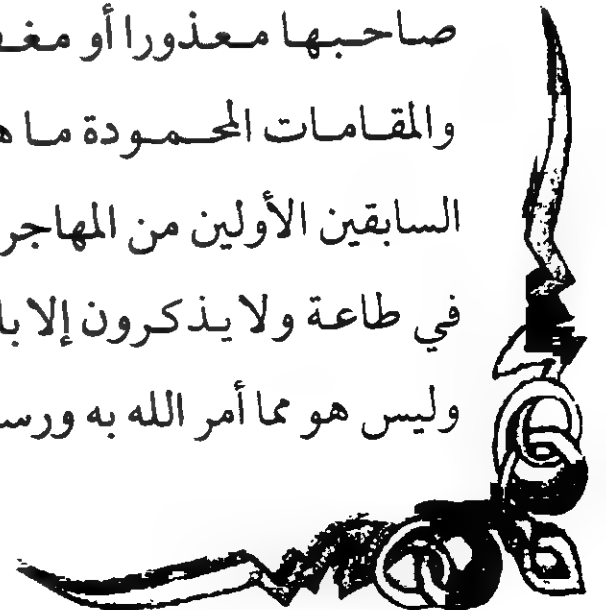 صاحبها معذورا أو مغف
والمقامات المحمودة ما ه
السابقين الأولين من المهاجر
في طاعة ولا يذكرون إلا با
وليس هو مما أمر الله به ورس